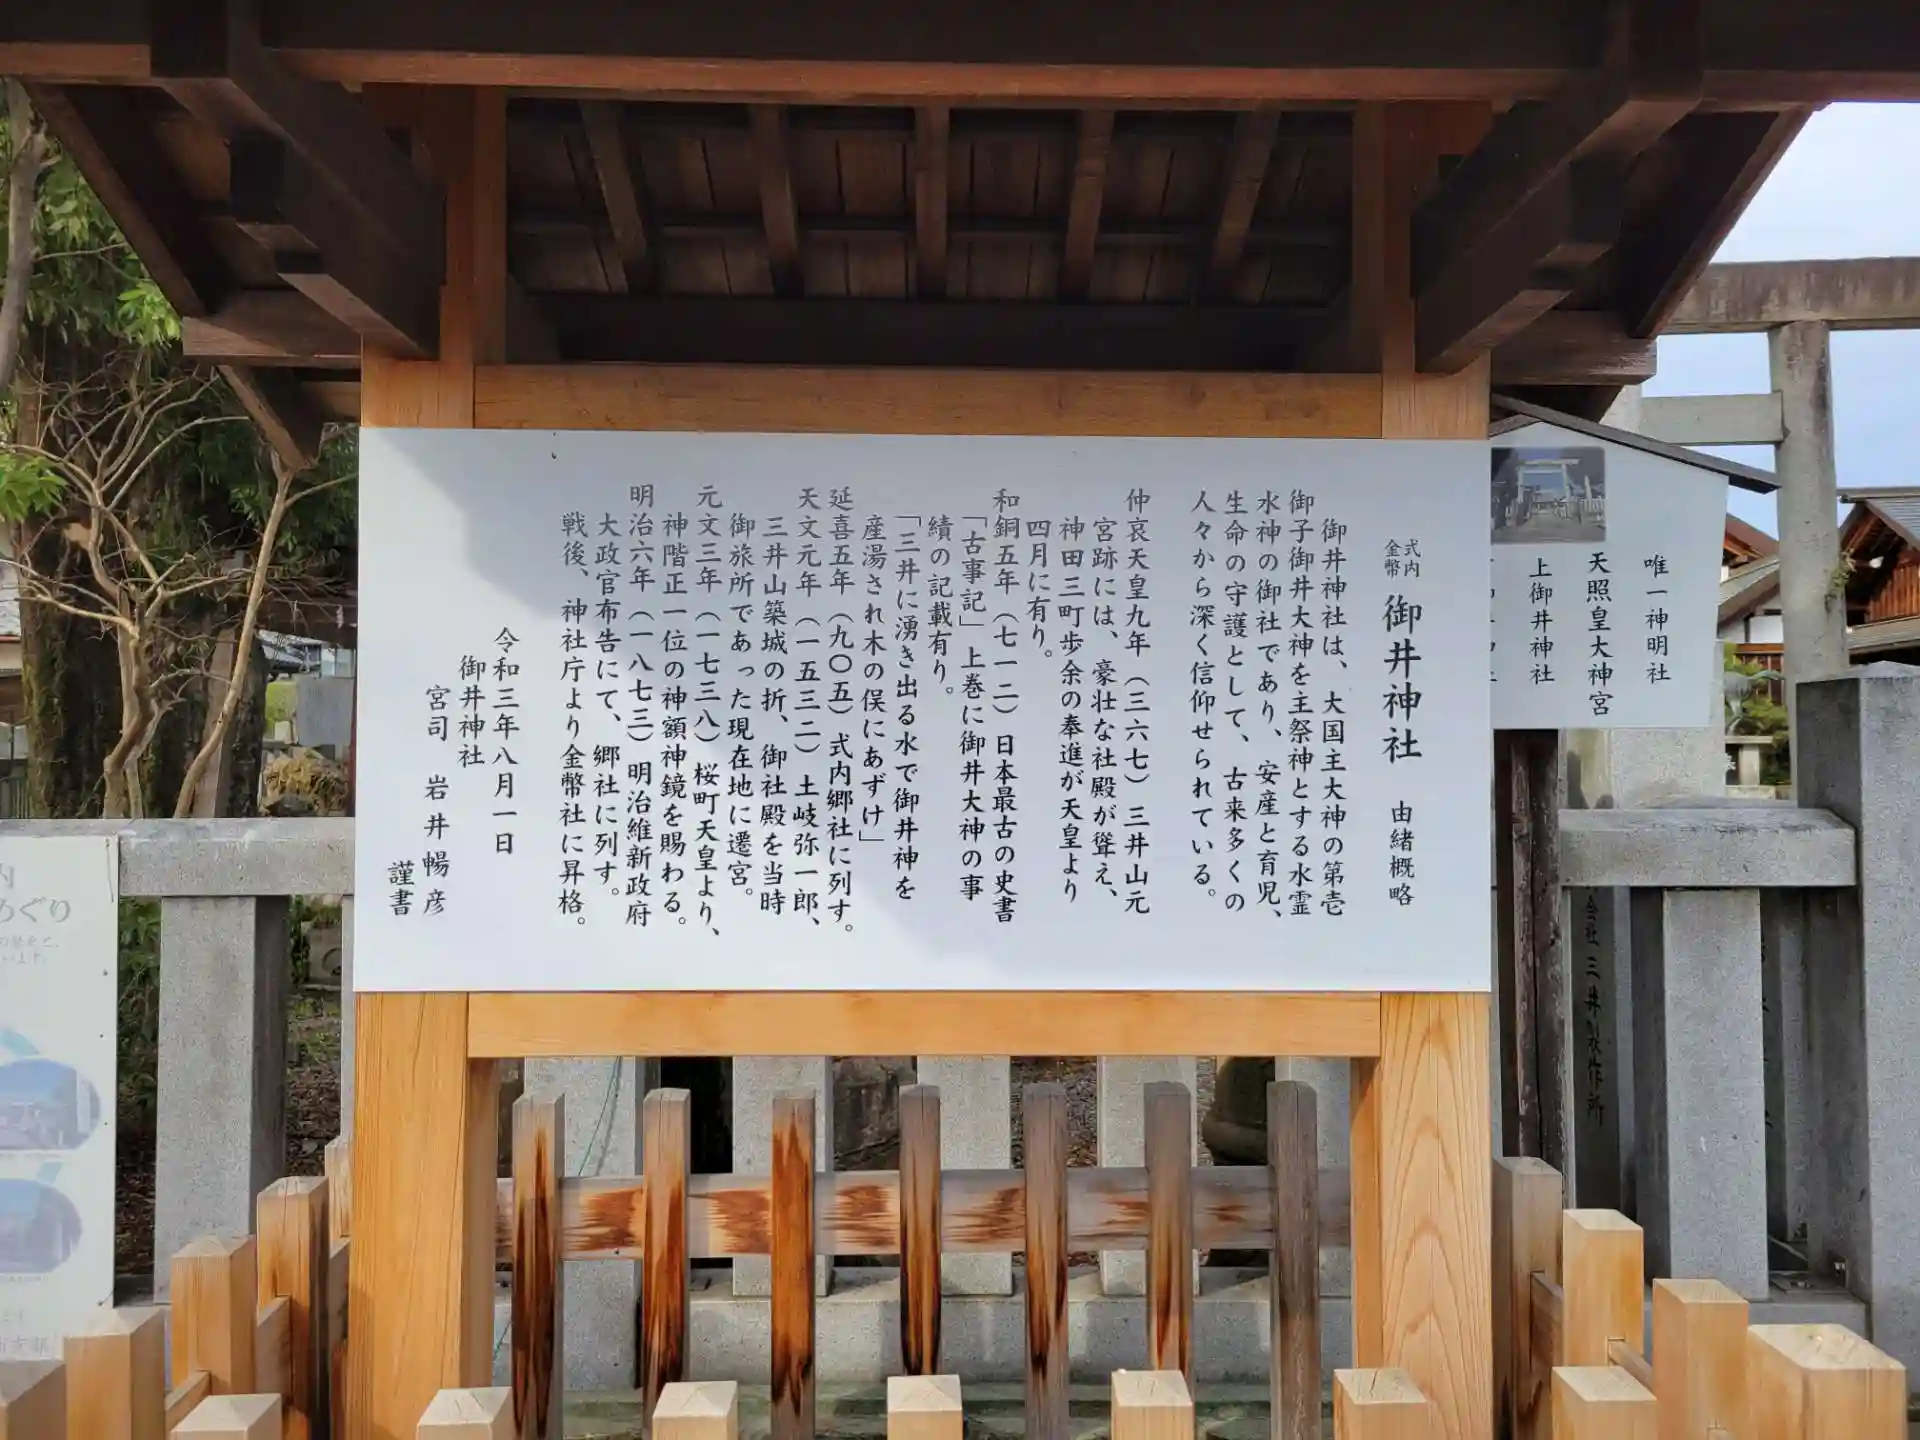 式内
金幣
御井神社 由緒概略
御井神社は、大国主大神の第壱
御子御井大神を主祭神とする水霊
水神の御社であり、安産と育児、
生命の守護として、古来多くの
人々から深く信仰せられている。
仲哀天皇九年(三六七)三井山元
宮跡には、豪壮な社殿が聳え、
神田三町歩余の奉進が天皇より
四月に有り。
和銅五年(七一二)日本最古の史書
「古事記」上巻に御井大神の事
績の記載有り。
「三井に湧き出る水で御井神を
産湯され木の俣にあずけ」
延喜五年(九〇五)式内郷社に列す。
天文元年(一五三二)土岐弥一郎、
三井山築城の折、御社殿を当時
御旅所であった現在地に遷宮。
元文三年(一七三八)桜町天皇より、
神階正一位の神額神鏡を賜わる。
明治六年(一八七三)明治維新政府
大政官布告にて、郷社に列す。
戦後、神社庁より金幣社に昇格。
令和三年八月一日
御井神社
宮司 岩井暢彦
謹書
唯一神明社
天照皇大神宮
上御井神社
会社三井製作所
めぐり